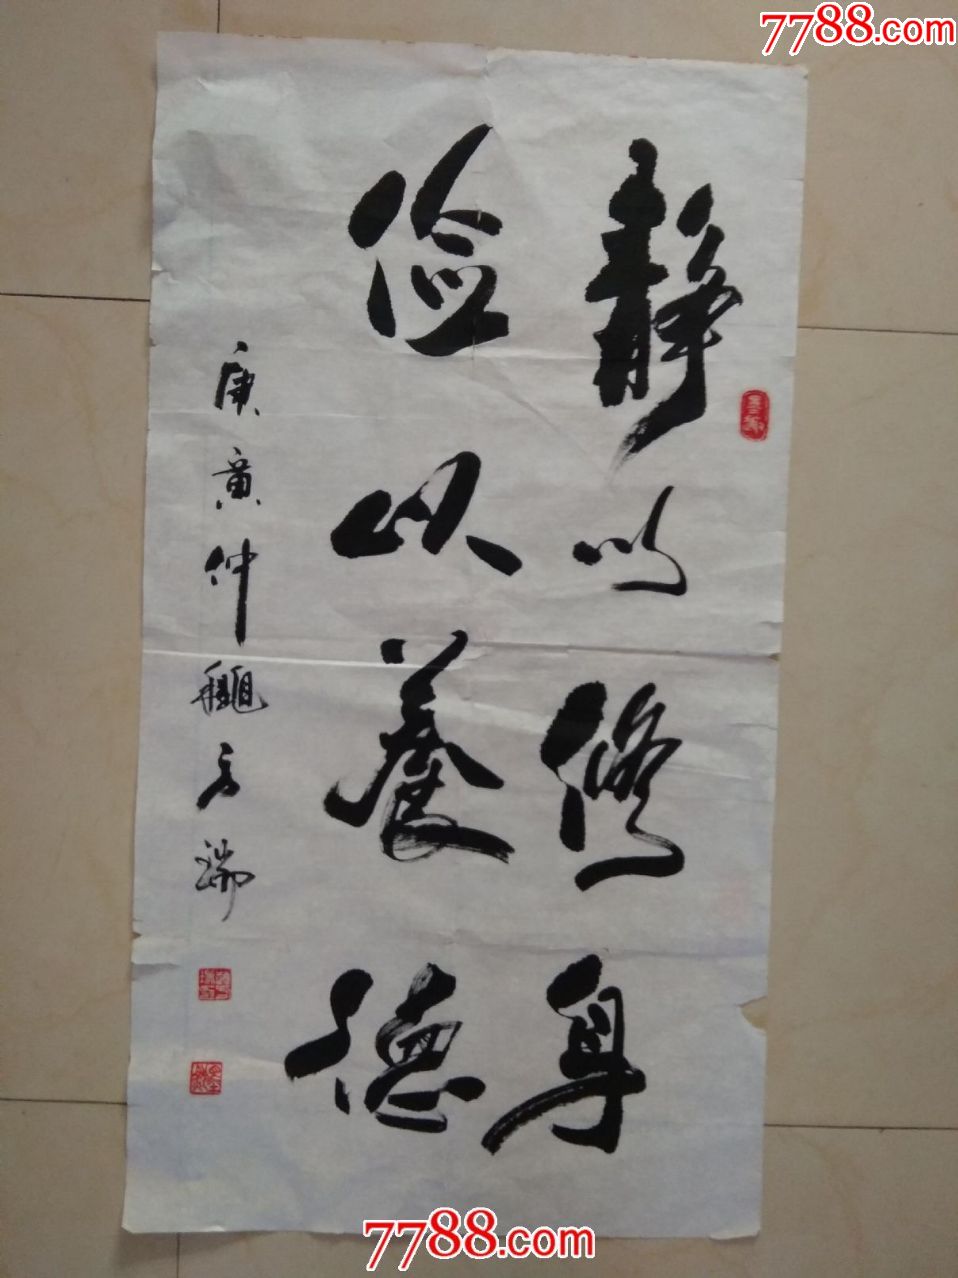 7788.com
静以修身
俭以養德
庚寅仲龝方瑞
7788.com